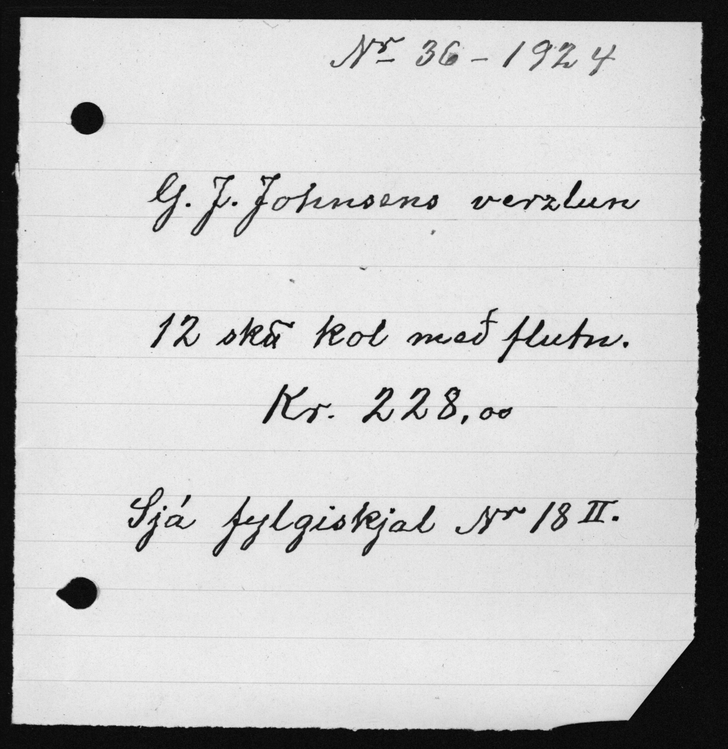 Nr 36 - 1924
G. J. Johnsens verzlun
12 skú kol með flutn.
Kr. 228,00
Sjá fylgiskjal Nr 18 II.